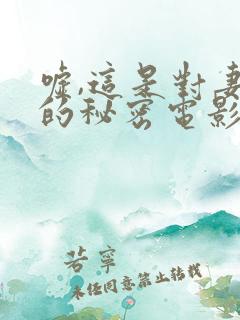 噓,這是對妻
的秘密電影
若寧
未經同意禁止轉載